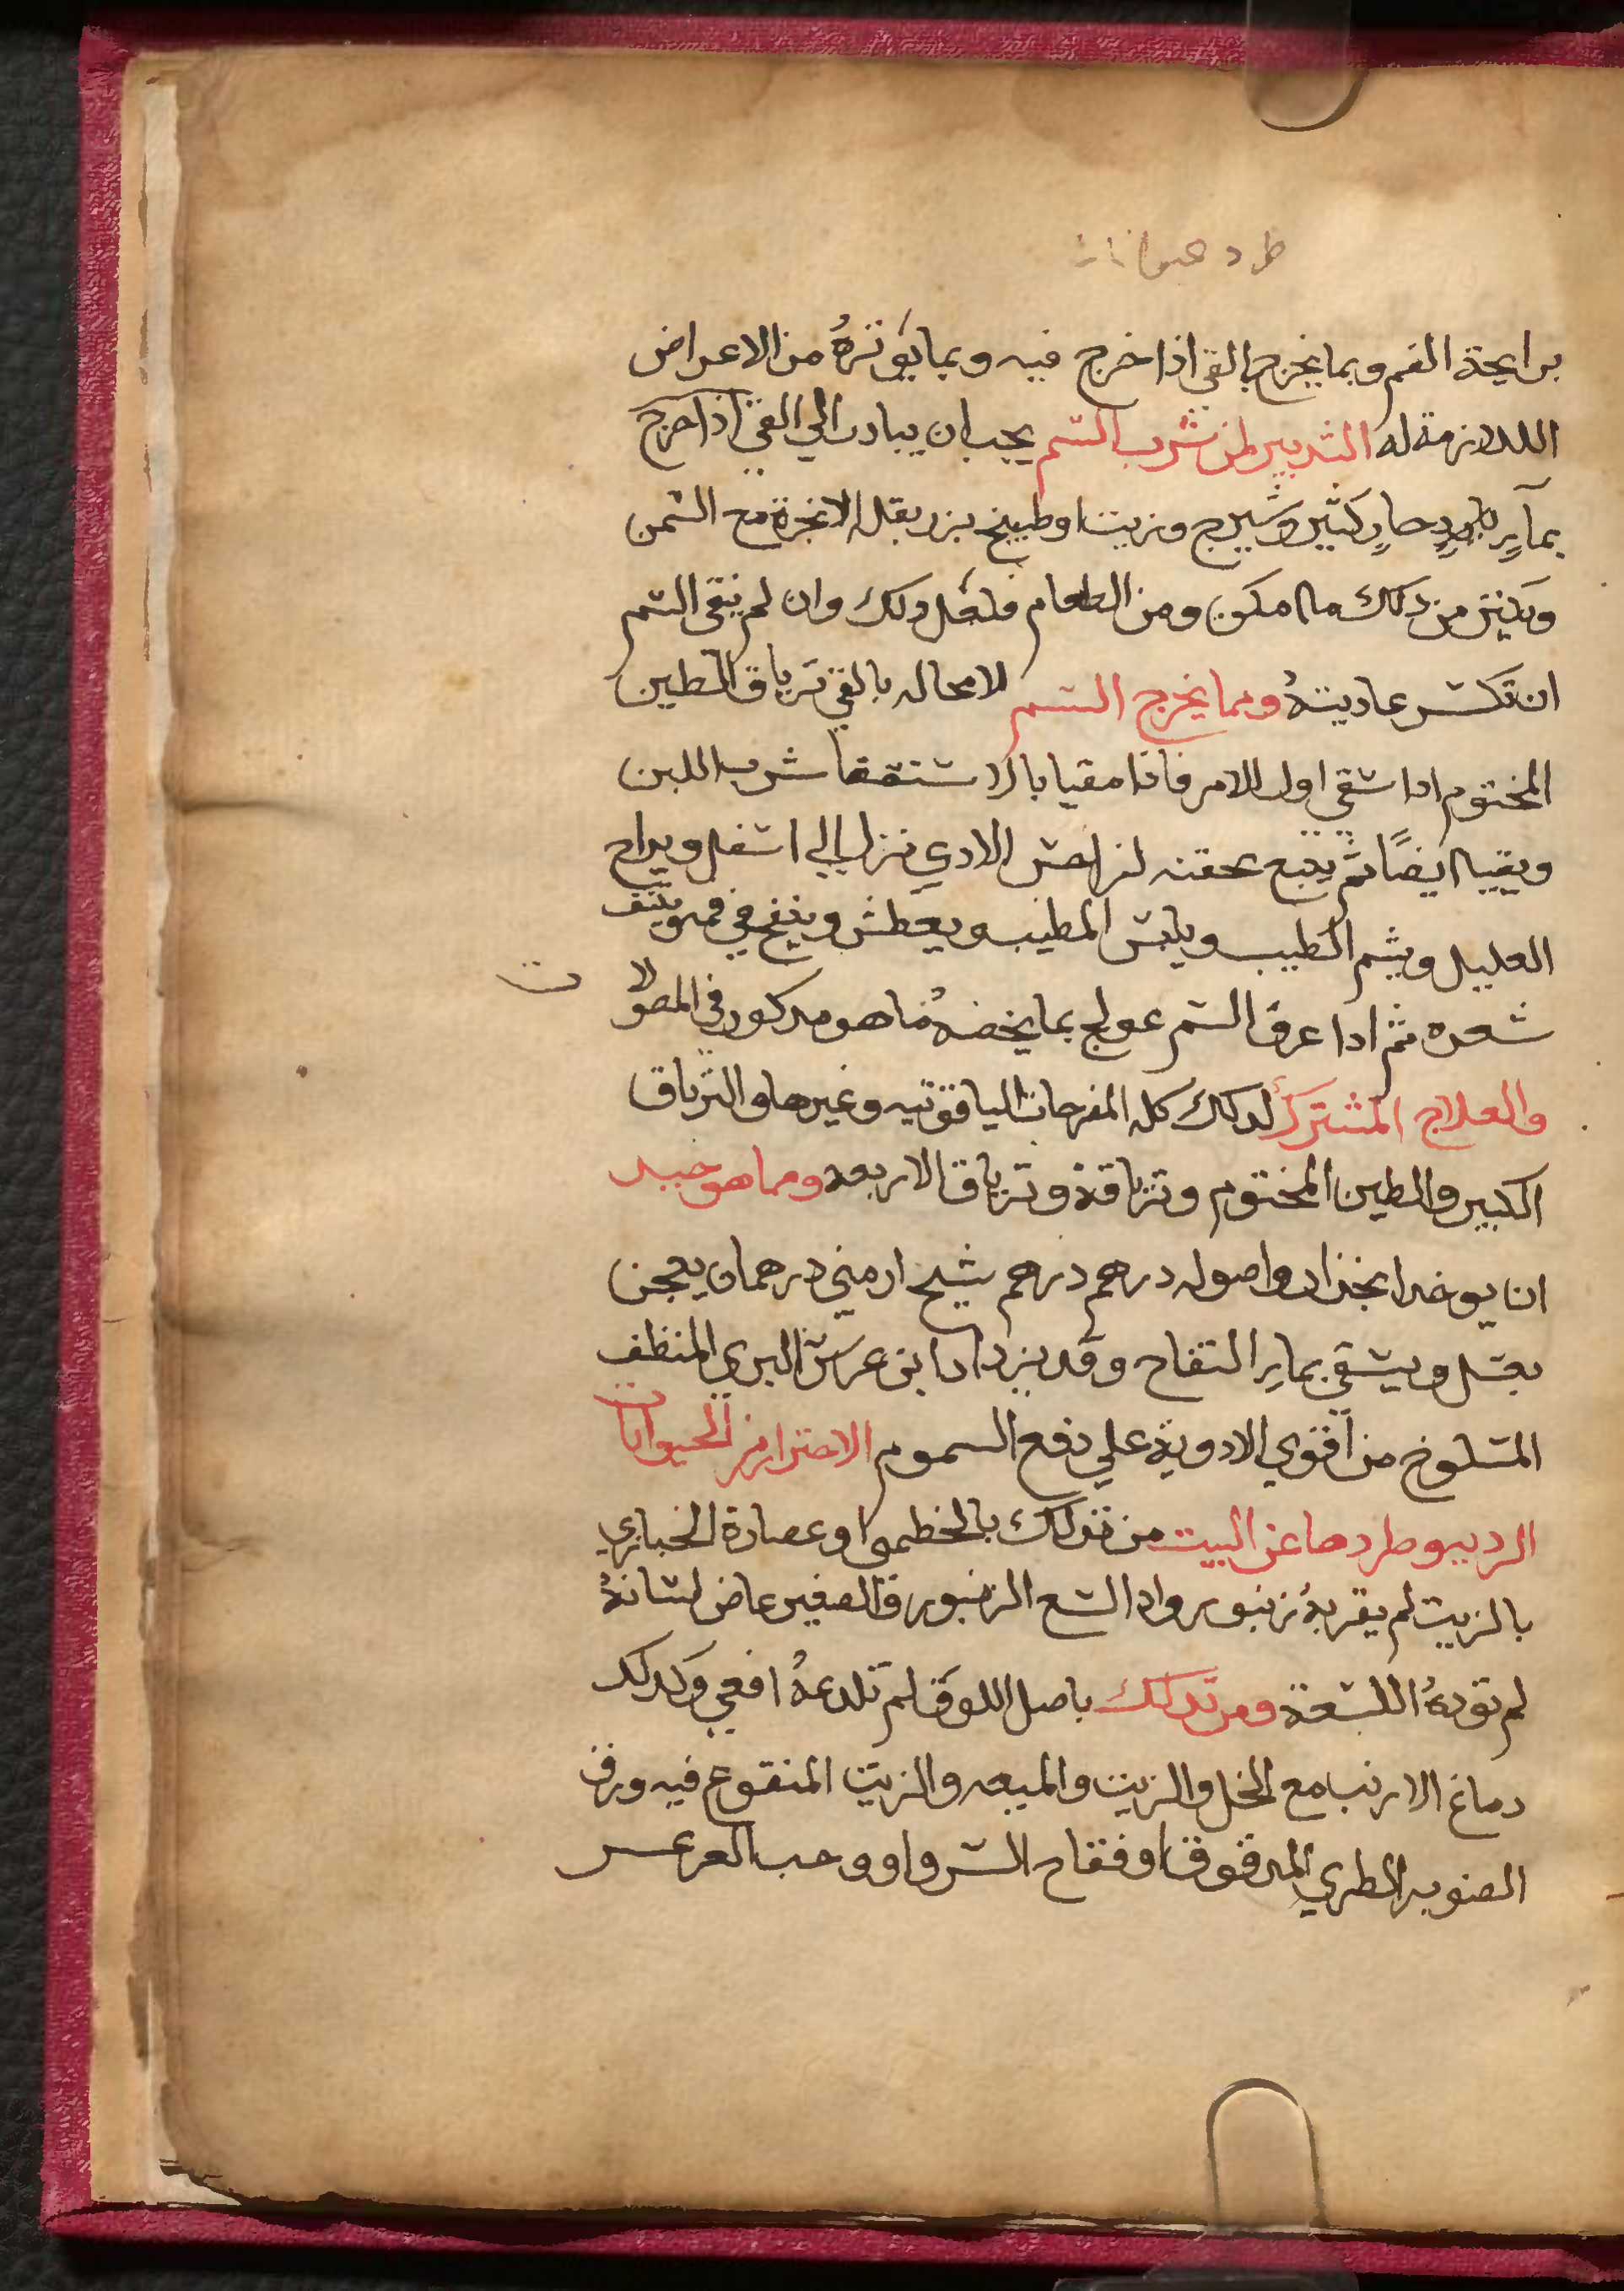 طرد حيوانات
برايحة الفم وبما يخرج بالقي اذا خرج فيه وبما يوثره من الاعراض
اللازمة له التدبير لمن شرب السم يجب ان يبادر الي القي اذا خرج
بمآءٍ حارٍ كثير وشيرج وزيت او طبيخ بزر بقله الانجرة مع السمن
ويكثر من ذلك ما امكن ومن الطعام فلعل ذلك وان لم ينقي السم
ان تكسر عاديتهُ ومما يخرج السم لا محاله بالقي ترياق الطين
المختوم ادا سقي اول الامر فانا مقيا بالاستقصا شرب اللبن
ويقييا ايضًا ثم يتبع بحقنه لمن احس الادي نزل الي اسفل ويراح
العليل ويشم الطيب ويلبس المطيب ويعطش وينفخ في فمه وينتف
شعره ثم ادا عرف السم عولج بما يخصهُ مما هو مدكور في المصولات
والعلاج المشترك لدلك كله المفرحات الياقوتيه وغيرها والترياق
الكبير والطين المختوم وترياقة وترياق الاربعه ومما هو جيد
ان يوخد انجدان واصوله درهم درهم شيح ارمني درهمان يعجن
بعسل ويسقي بماءِ التفاح وقد يزد ادا ابن عرس البري المنظف
المسلوخ من اقوي الادوية علي دفع السموم الاحتراز من الحيوانات
الرديه وطردها عن البيت من تدلك بالخطمي او عصارة الخبازي
بالزيت لم يقربهُ زنبور واد السع الزنبور فالصغير عاض لسانهُ
لم تودهُ اللسعة ومن تدلك باصل اللوف لم تلدعهُ افعي وكدلك
دماغ الارنب مع الخل والزيت والميعه والزيت المنقوع فيه ورق
الصنوبر الطري المدقوق او فقاح السرو او وحب العرعر